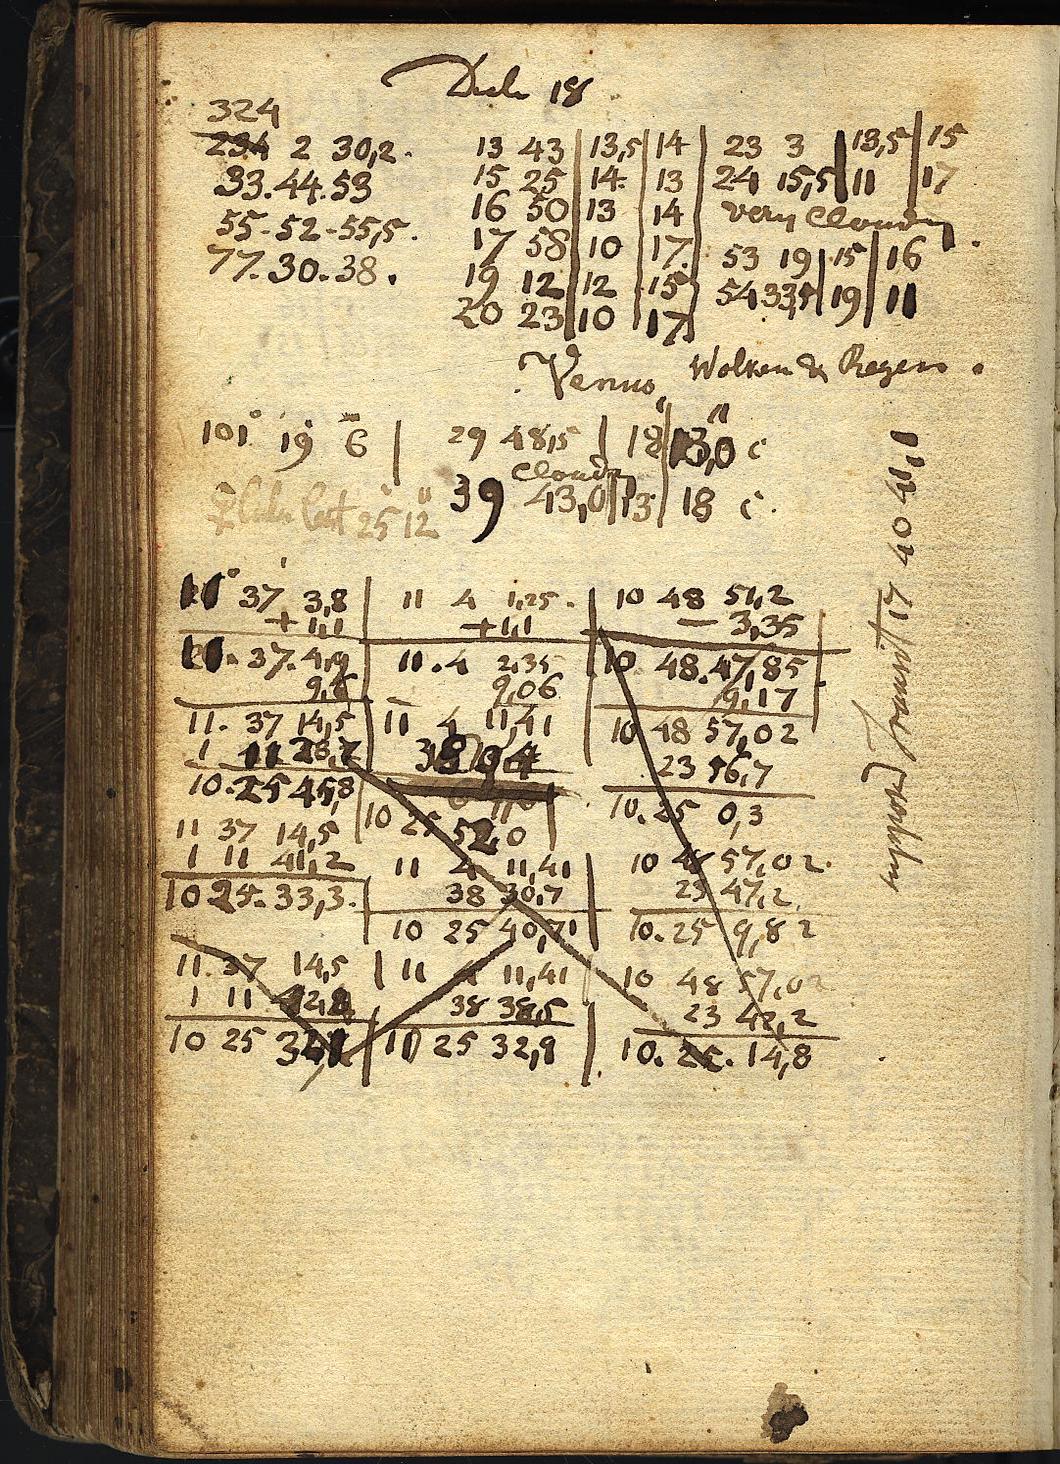 18
324
234 2 30,2. 13 43 | 13,5 | 14 | 23 3 | 13,5 | 15
33.44.53 15 25 | 14. | 13 | 24 15,5 | 11 | 17
16 50 | 13 | 14 very Cloudy.
55-52-55,5. 17 58 | 10 | 17. 53 19 | 15 | 16
77.30.38. 19 12 | 12 | 15 54 33,5 | 19 | 11
20 23 | 10 | 17
Venus Wolken & Regen.
101° 19 6 | 29 48,5 | 18 | 13,0 c
Cloudy
♀ last 25 12 39 43,0 | 13 | 18 c.
37 3,8 | 11 4 1,25. | 10 48 51,2
+ 1,1 +1,1 — 3,35
37.4,9 | 11.4 2,35 | 10 48.47,85
9,6 9,06 9,17
11. 37 14,5 | 11 4 11,41 | 10 48 57,02
1 11 23 56,7
10.25 45,8 | 10 25 52,0 | 10.25 0,3
11 37 14,5 11 4 11,41 10 48 57,02.
1 11 41,2 38 30,7 23 47,2
10 25. 33,3. | 10 25 40,71 10.25 9,82
11.37 14,5 | 11 4 11,41 10 48 57,02
1 11 42,8 38 38,5 23 42,2
10 25 | 10 25 32,9 | 10. 25. 14,8
Transit 17 40 41,1